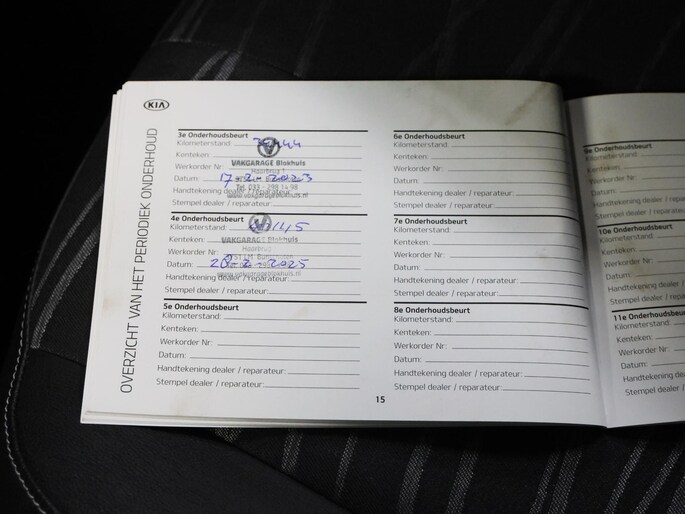 KIA
OVERZICHT VAN HET PERIODIEK ONDERHOUD
3e Onderhoudsbeurt
Kilometerstand:
Kenteken:
VAKGARAGE Blokhuis
Werkorder Nr:
Datum: 17-2-2023
Tel. 033 - 298 14 98
Handtekening dealer / reparateur:
www.vakgarageblokhuis.nl
Stempel dealer / reparateur:
4e Onderhoudsbeurt
Kilometerstand:
Kenteken:
VAKGARAGE Blokhuis
Werkorder Nr:
Datum: 20-2-2025
Handtekening dealer / reparateur:
www.vakgarageblokhuis.nl
Stempel dealer / reparateur:
5e Onderhoudsbeurt
Kilometerstand:
Kenteken:
Werkorder Nr:
Datum:
Handtekening dealer / reparateur:
Stempel dealer / reparateur:
6e Onderhoudsbeurt
Kilometerstand:
Kenteken:
Werkorder Nr:
Datum:
Handtekening dealer / reparateur:
Stempel dealer / reparateur:
7e Onderhoudsbeurt
Kilometerstand:
Kenteken:
Werkorder Nr:
Datum:
Handtekening dealer / reparateur:
Stempel dealer / reparateur:
8e Onderhoudsbeurt
Kilometerstand:
Kenteken:
Werkorder Nr:
Datum:
Handtekening dealer / reparateur:
Stempel dealer / reparateur:
15
9e Onderhoudsbeurt
Kilometerstand:
Kenteken:
Werkorder Nr:
Datum:
Handtekening dealer
Stempel dealer / repa
10e Onderhoudsbeurt
Kilometerstand:
Kenteken:
Werkorder Nr:
Datum:
Handtekening deale
Stempel dealer / rep
11e Onderhoudsbeu
Kilometerstand:
Kenteken:
Werkorder Nr:
Datum:
Handtekening dea
Stempel dealer / r